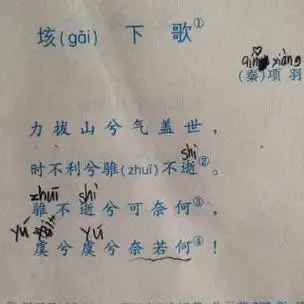 垓(gāi) 下 歌①
qín xiàng
(秦)项 羽
力 拔 山 兮 气 盖 世 ,
shì
时 不 利 兮 骓(zhuī)不 逝②。
zhuī shì
骓 不 逝 兮 可 奈 何③,
yú yú
虞 兮 虞 兮 奈 若 何④!